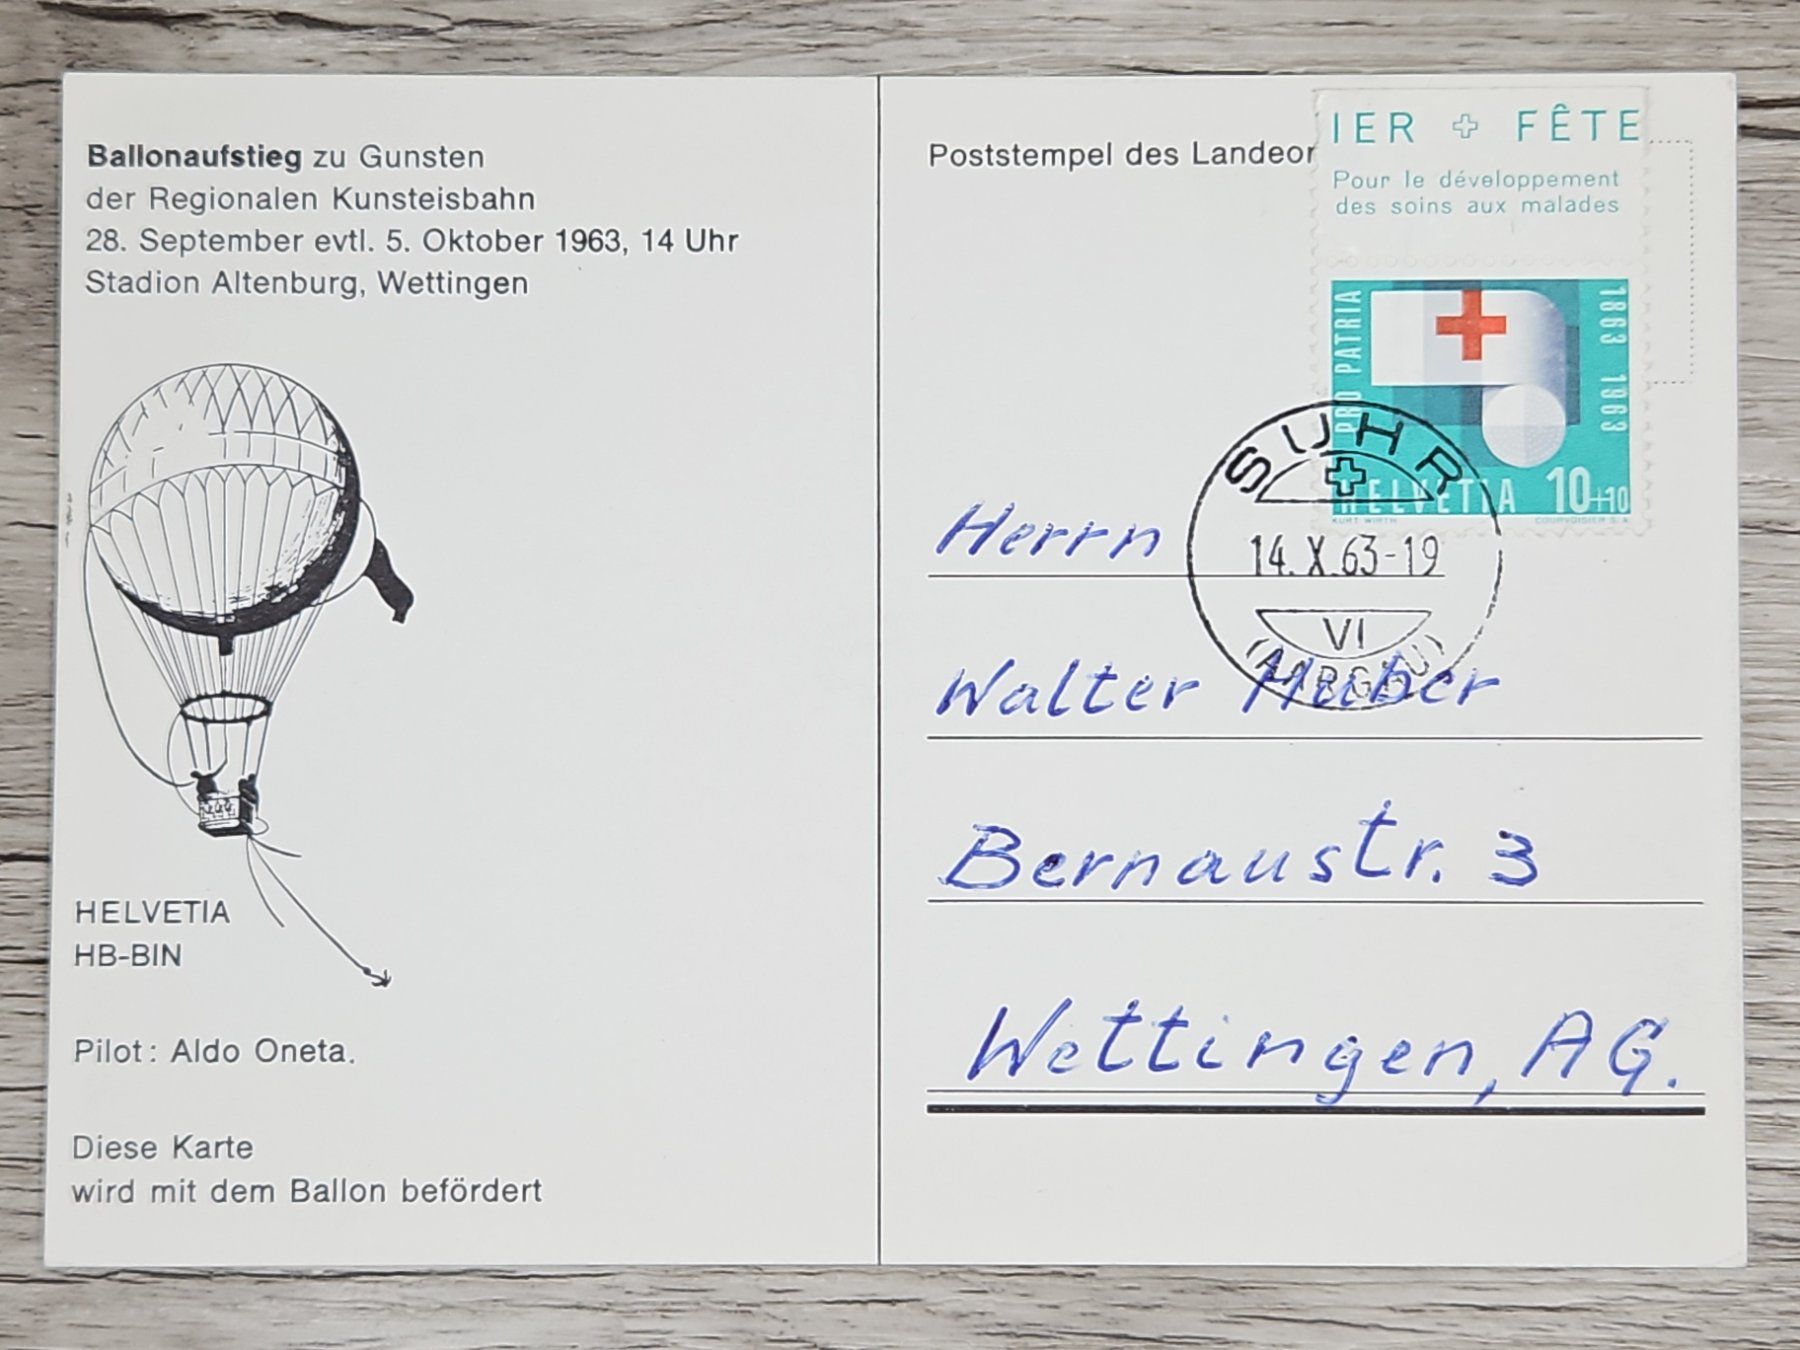 Ballonaufstieg zu Gunsten
der Regionalen Kunsteisbahn
28. September evtl. 5. Oktober 1963, 14 Uhr
Stadion Altenburg, Wettingen
HELVETIA
HB-BIN
Pilot: Aldo Oneta.
Diese Karte
wird mit dem Ballon befördert
Poststempel des Landeor
IER + FÊTE
Pour le développement
des soins aux malades
PRO PATRIA
1863 1963
HELVETIA 10+10
KURT WIRTH COURVOISIER S.A.
SUHR
14.X.63-19
VI
(AARGAU)
Herrn
Walter Huber
Bernaustr. 3
Wettingen, AG.